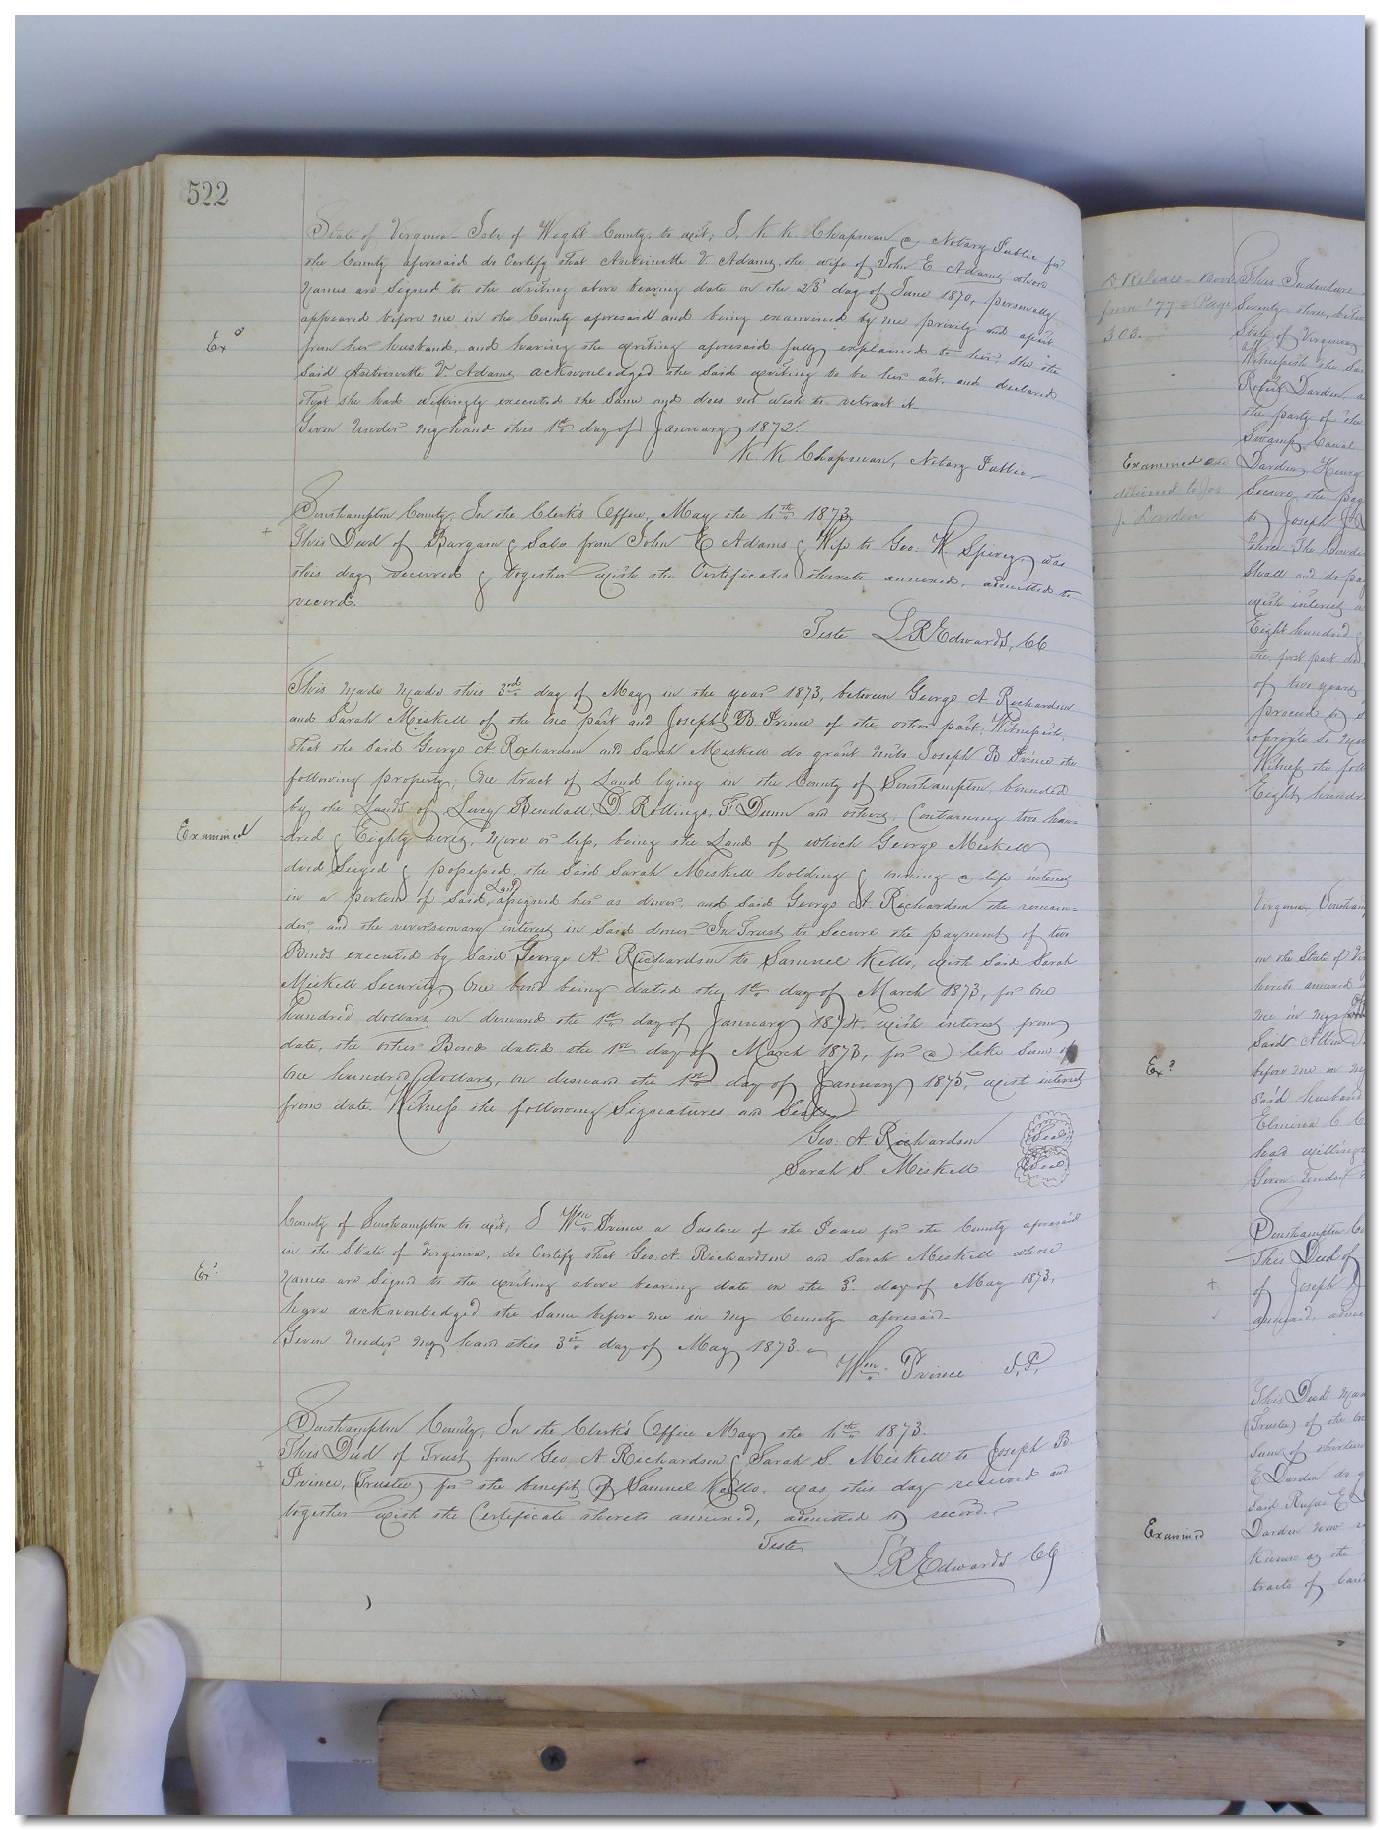 522
State of Virginia Isle of Wight County, to wit; I, K. K. Chapman a, Notary Public for
the County aforesaid do Certify that Antoinette V. Adams, the wife of John E. Adams whose
Names are Signed to the writing above bearing date on the 23d day of June 1870, personally
appeared before me in the County aforesaid and being examined by me privily and apart
Exd
from her husband, and having the writing aforesaid fully explained to her, She the
Said Antoinette V. Adams, acknowledged the Said writing to be her act, and declared
that she had willingly executed the Same and does not wish to retract it.
Given Under my hand this 1st day of January 1872.
K. K. Chapman, Notary Public
Southampton County, In the Clerk's Office, May the 6th 1873,
This Deed of Bargain & Sale from John E Adams & Wife to Geo. W. Spivey, was
this day received & together with the Certificates thereto annexed, admitted to
record.
Teste L. R. Edwards, CC
This made made this 3rd day of May in the year 1873, between George A Richardson
and Sarah Miskell of the one part and Joseph B. Prince of the other part, Witnesseth,
that the Said George A. Richardson and Sarah Miskell do grant unto Joseph B Prince the
following property, One tract of Land lying in the County of Southampton, bounded
by the Lands of Lucy Bendall, D. Rollings, F. Dunn and others, Containing two hun-
Examined
dred & Eighty acres, more or less, being the Land of which George Miskell
died Seized & possessed, the Said Sarah Miskell holding & owning a life interest
in a portion of Said Land, assigned her as dower, and Said George A. Richardson the remain-
der, and the reversionary interest in Said dower In Trust to Secure the payment of two
Bonds executed by Said George A. Richardson to Samuel Kello, with Said Sarah
Miskell Security, One bond being dated the 1st day of March 1873, for One
hundred dollars on demand the 1st day of January 1874, with interest from
date, the other Bond dated the 1st day of March 1873, for a like Sum of
One hundred Dollars, on demand the 1st day of January 1875, with interest
from date. Witness the following Signatures and Seals
Geo. A. Richardson Seal
Sarah S. Miskell Seal
County of Southampton to wit; I Wm Prince a Justice of the Peace for the County aforesaid
in the State of Virginia, do Certify that Geo. A. Richardson and Sarah Miskell whose
Exd
Names are Signed to the writing above bearing date on the 3d day of May 1873,
have acknowledged the Same before me in my County aforesaid
Given Under my hand this 3rd day of May 1873.
Wm Prince J.P.
Southampton County, In the Clerk's Office May the 6th 1873.
This Deed of Trust from Geo. A. Richardson & Sarah S. Miskell to Joseph B
Prince, (Trustee) for the benefit of Samuel Kello, was this day received and
together with the Certificate thereto annexed, admitted to record.
Teste
L R Edwards CC
A Release Book
Page
303.
This Indenture
Seventy three, betw
State of Virginia
Witnesseth the Sa
Rufus Darden a
the party of the
Swamp Canal
Examined and
Darden, Henry
delivered to Jos
Secure the pay
J. Darden
to Joseph J. D
Shall and do pay
with interest
Eight hundred
the first part do
of two years
proceed to
Witness the foll
Eight hundre
Virginia, Southam
in the State of Vir
hereto annexed
me in my
Said
Exd
before me in my
said husband
Elmina C
had willing
Given Under
Southampton Co
This Deed of
of Joseph J
annexed, admi
This Deed Mad
(Trustee) of the one
Sum of thirteen
E Darden do g
Said Rufus E
Examined
Darden now
Known as the
tracts of Land